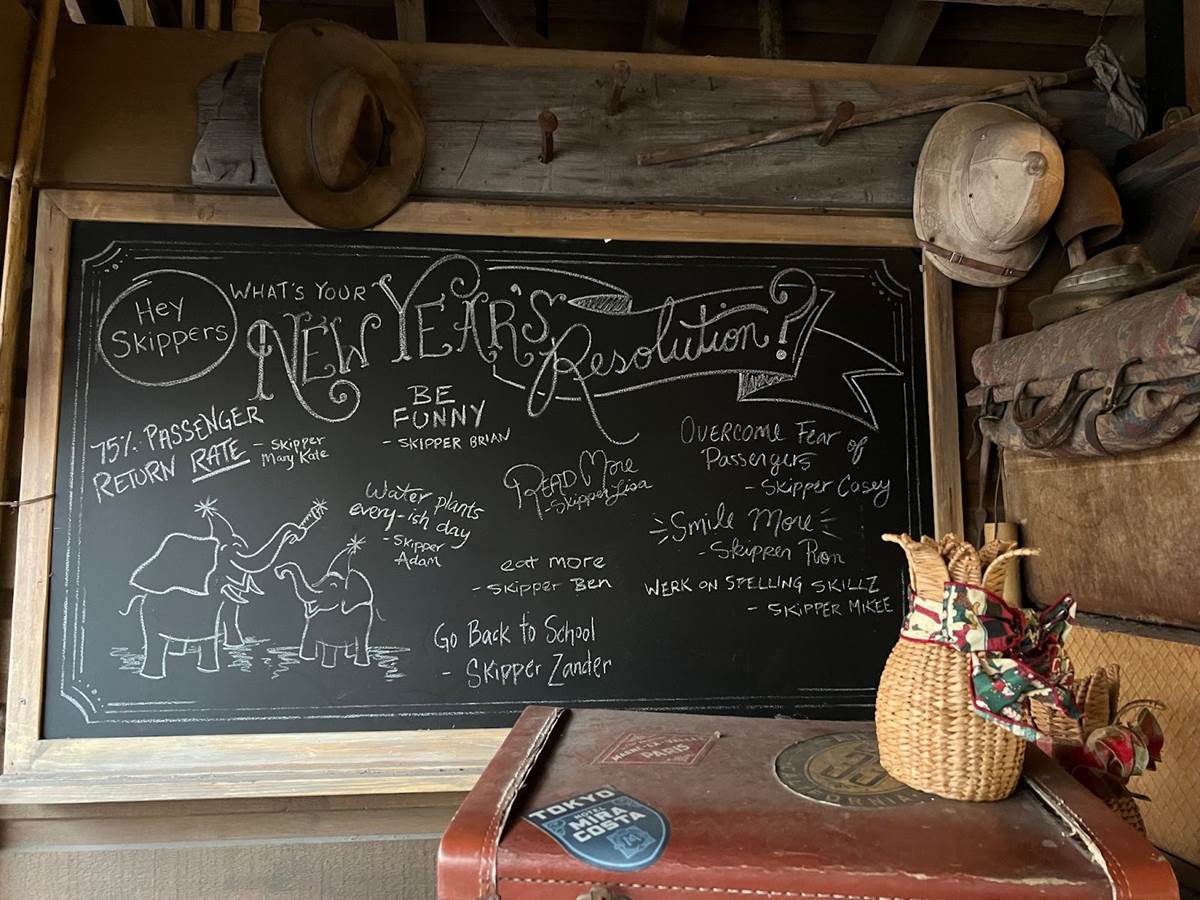 Hey
Skippers
WHAT'S YOUR
NEW YEAR'S
Resolution?
75% PASSENGER
RETURN RATE - Skipper
Mary Kate
BE
FUNNY
- SKIPPER BRIAN
Overcome Fear of
Passengers
- Skipper Casey
READ More
- Skipper Lisa
Water plants
every-ish day
- Skipper
Adam
Smile More
- Skipper Ron
eat more
- Skipper Ben
WERK ON SPELLING SKILLZ
- SKIPPER MIKEE
Go Back to School
- Skipper Zander
PARIS
TOKYO
HOTEL
MIRA
COSTA